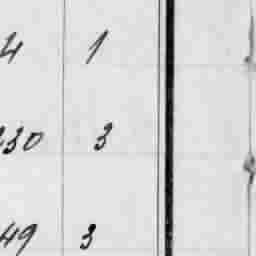 4 1
230 3
49 3